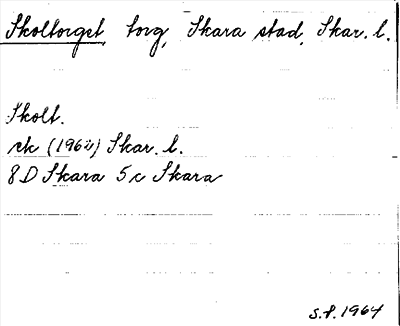 Skoltorget, torg, Skara stad, Skar. l.
Skolt.
ek (1964) Skar. l.
8D Skara 5c Skara
S.F. 1964